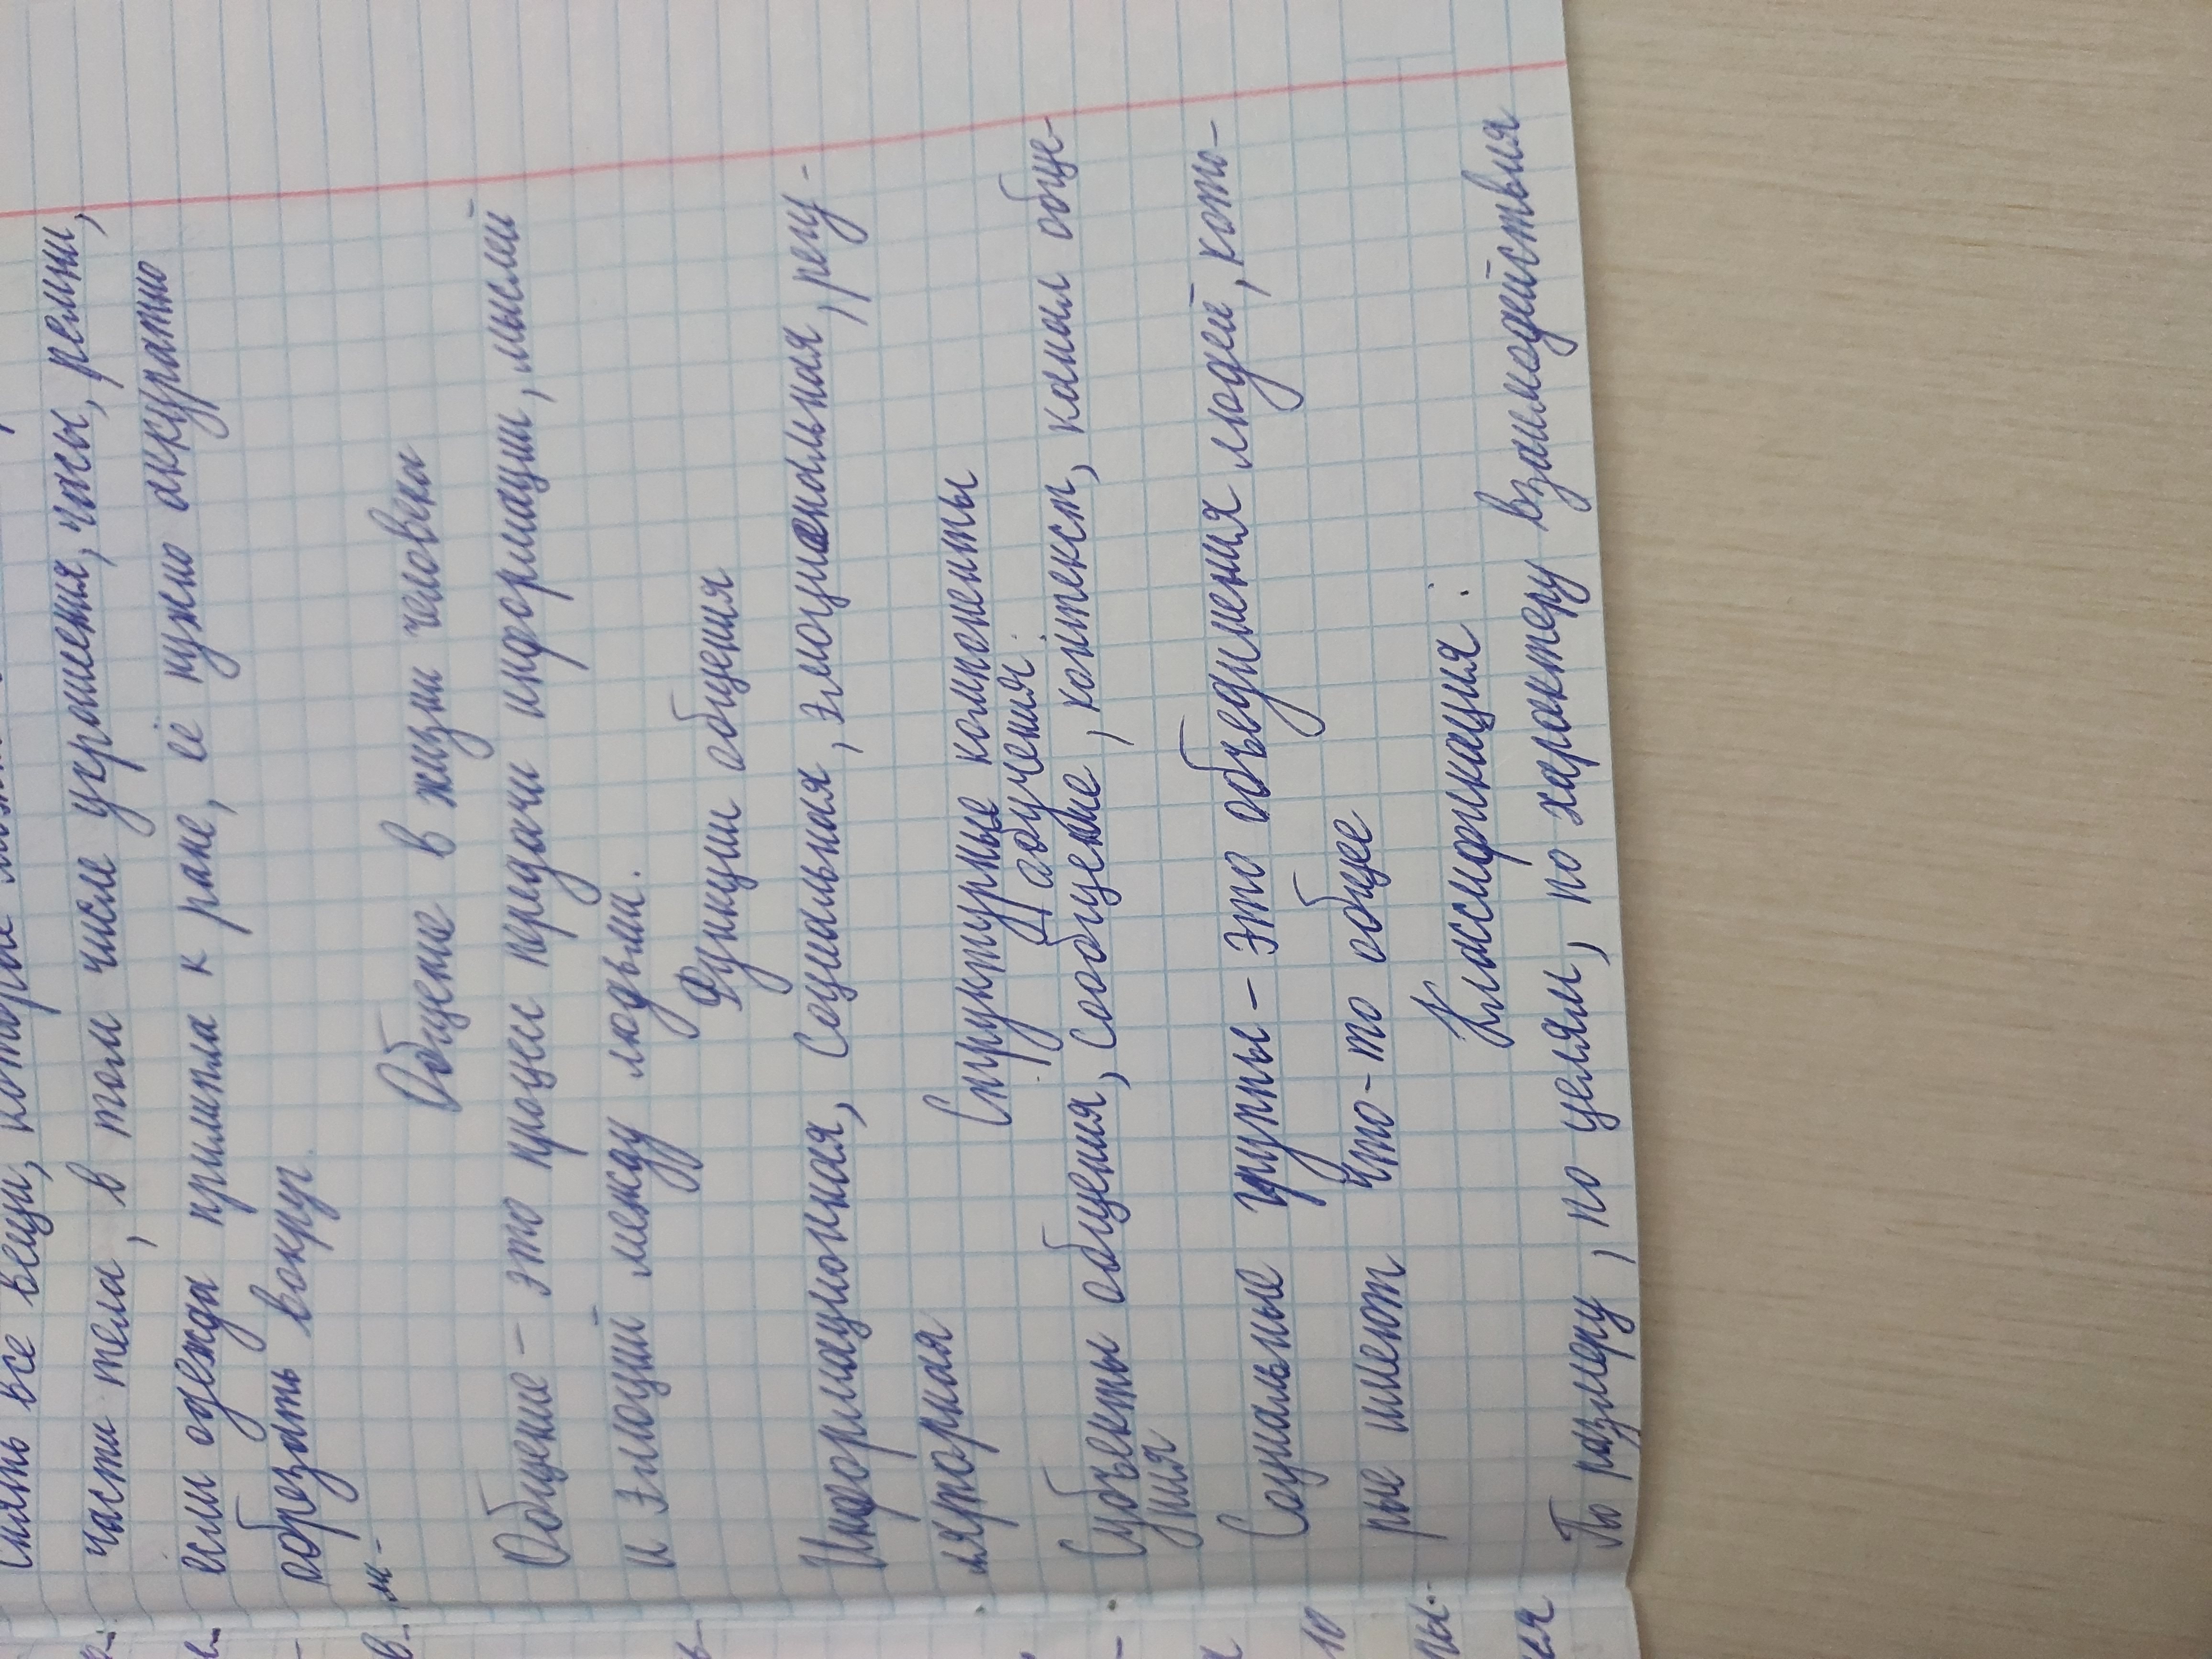 снять все вещи, которые
части тела, в том числе украшения, часы, ремни,
если одежда прилипла к ране, её нужно аккуратно
обрезать вокруг.
Общение в жизни человека
Общение - это процесс передачи информации, мыслей
и эмоций между людьми.
Функции общения
Информационная, Социальная, эмоциональная, регу-
ляторная
Структурные компоненты
обучения:
Субъекты общения, сообщение, контекст, канал обще-
ния
Социальные групы - это объеднения людей, кото-
рые имеют что-то общее
Классификация:
По размеру, по целям, по характеру взаимодействия